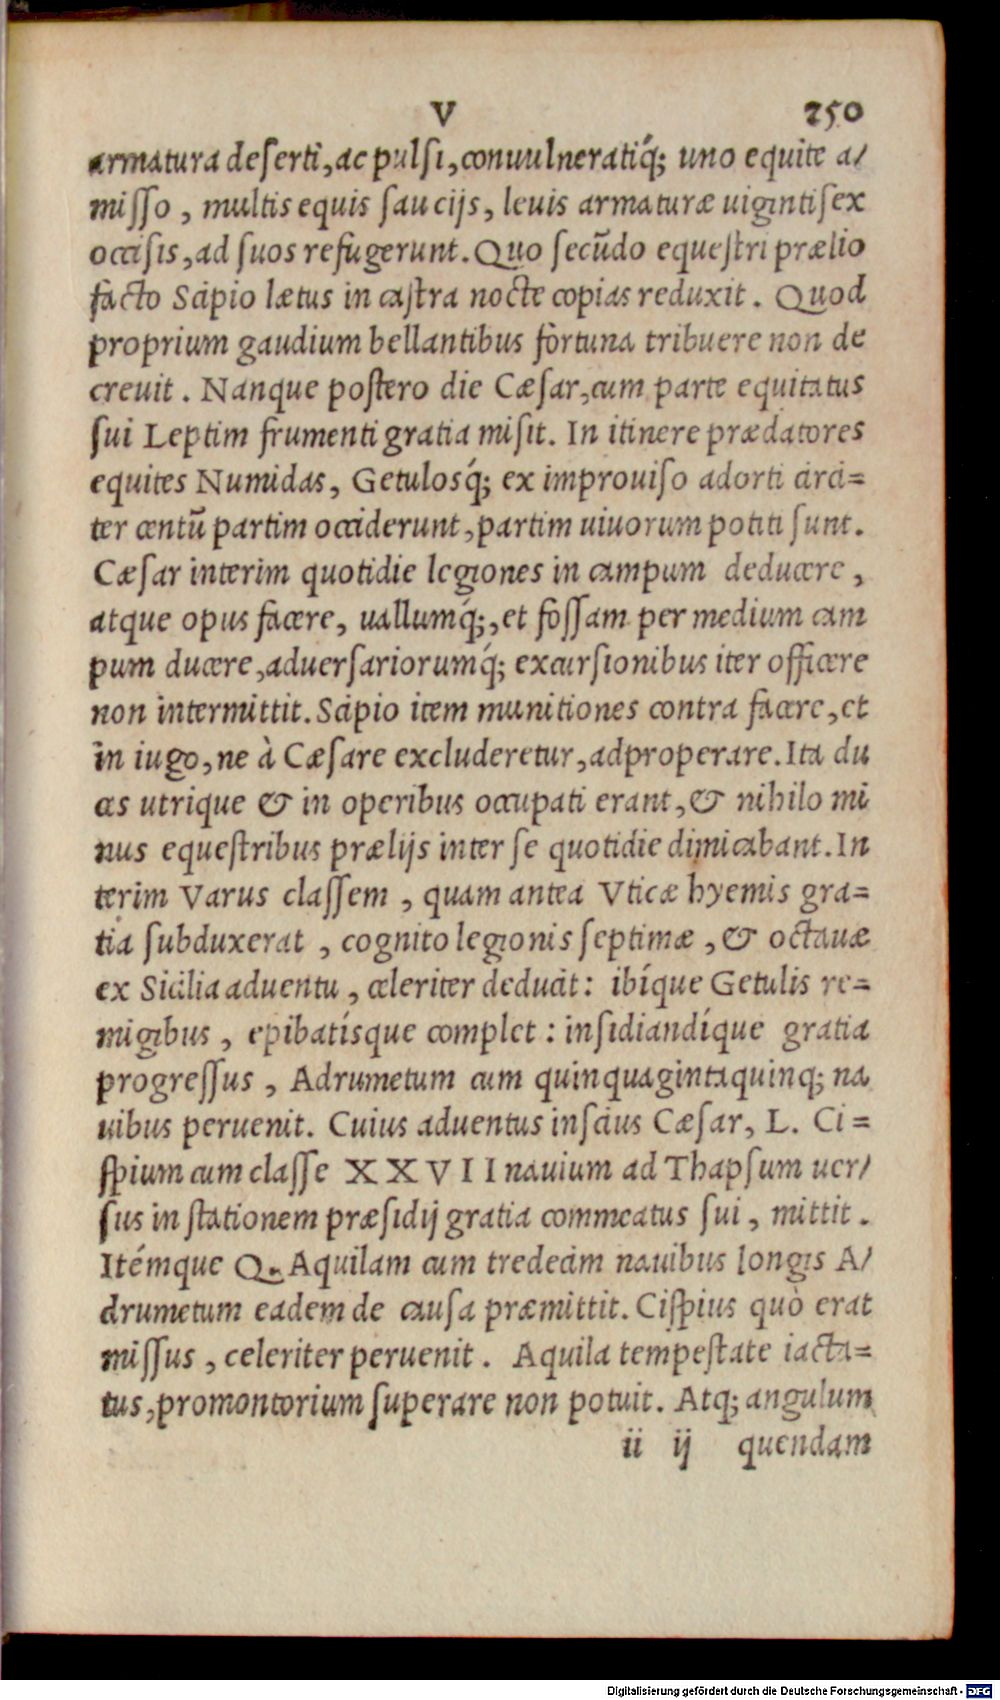 V 250
armatura deserti, ac pulsi, conuulneratiq́; uno equite a/
misso, multis equis saucijs, leuis armaturæ uigintisex
occisis, ad suos refugerunt. Quo secũdo equestri prælio
facto Scipio lætus in castra nocte copias reduxit. Quod
proprium gaudium bellantibus fortuna tribuere non de
creuit. Nanque postero die Cæsar, cum parte equitatus
sui Leptim frumenti gratia misit. In itinere prædatores
equites Numidas, Getulosq́; ex improuiso adorti circi=
ter centũ partim occiderunt, partim uiuorum potiti sunt.
Cæsar interim quotidie legiones in campum deducere,
atque opus facere, uallumq́;, et fossam per medium cam
pum ducere, aduersariorumq́; excursionibus iter officere
non intermittit. Scipio item munitiones contra facere, et
in iugo, ne à Cæsare excluderetur, adproperare. Ita du
ces utrique & in operibus occupati erant, & nihilo mi
nus equestribus prælijs inter se quotidie dimicabant. In
terim Varus classem, quam antea Vticæ hyemis gra=
tia subduxerat, cognito legionis septimæ, & octauæ
ex Sicilia aduentu, celeriter deducit: ibíque Getulis re=
migibus, epibatísque complet: insidiandíque gratia
progressus, Adrumetum cum quinquagintaquinq; na
uibus peruenit. Cuius aduentus inscius Cæsar, L. Ci=
spium cum classe XXVII nauium ad Thapsum uer/
sus in stationem præsidij gratia commeatus sui, mittit.
Itémque Q. Aquilam cum tredecim nauibus longis A/
drumetum eadem de causa præmittit. Cispius quò erat
missus, celeriter peruenit. Aquila tempestate iacta=
tus, promontorium superare non potuit. Atq; angulum
ii ij quendam
Digitalisierung gefördert durch die Deutsche Forschungsgemeinschaft - DFG